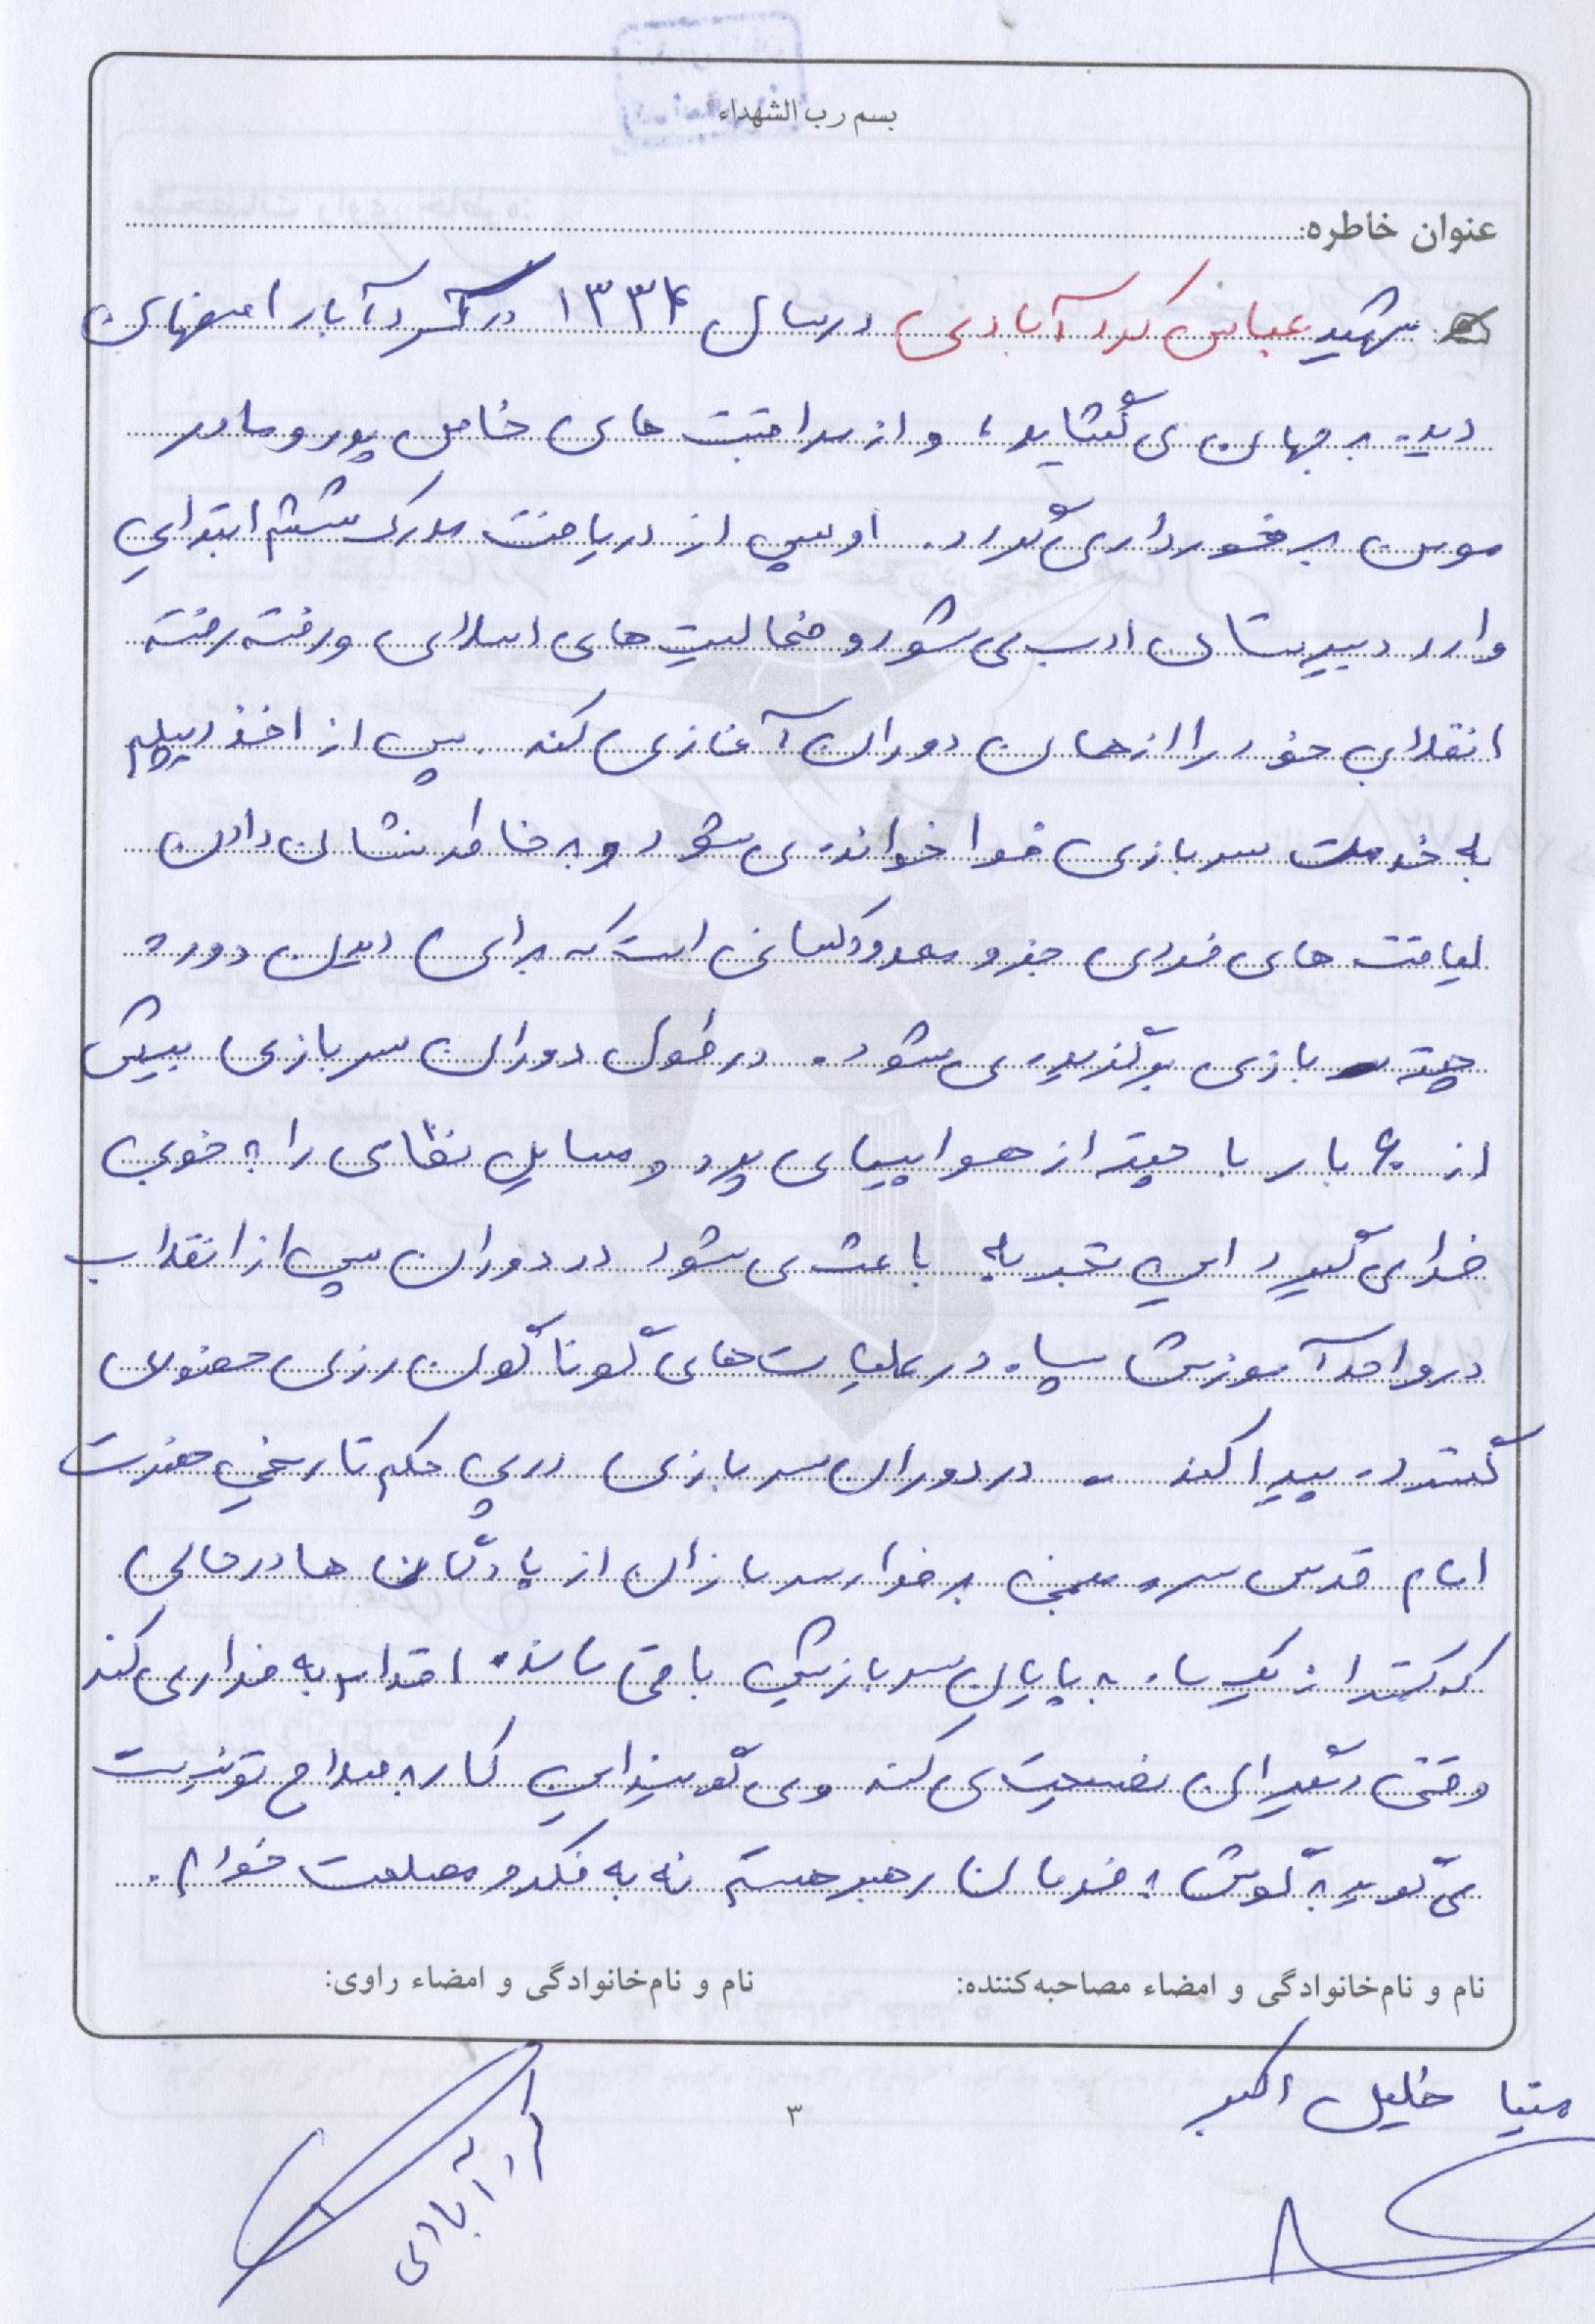 بسم رب الشهداء
عنوان خاطره:
شهید عباس کردآبادی در سال ۱۳۳۴ در کردآباد اصفهان
دیده بجهان می گشاید، و از مراقبت های خاص پدر و مادر
مومن برخورداری گردد. او پس از دریافت مدرک ششم ابتدایی
وارد دبیرستان ادب می شود و فعالیت های اسلامی و رفته رفته
انقلابی خود را از همان دوران آغاز می کند. پس از اخذ دیپلم
به خدمت سربازی فرا خوانده می شود و به خاطر نشان دادن
لیاقت های فردی جزو معدود کسانی است که برای دیدن دوره
چتربازی برگزیده می شود. در طول دوران سربازی بیش
از ۶ بار با چتر از هواپیما می پرد و مسایل نظامی را به خوبی
فرا می گیرد این تجربه باعث می شود در دوران پس از انقلاب
در واحد آموزش سپاه در عملیات های گوناگون رزمی حضوری
گسترده پیدا کند. در دوران سربازی در پی حکم تاریخی حضرت
امام قدس سره مبنی بر فرار سربازان از پادگان ها در حالی
که کمتر از یک ماه به پایان سربازیش باقی مانده اقدام به فرار می کند
وقتی دیگران نصیحت می کنند و می گویند این کار به صلاح تو نیست
می گوید به گوش به فرمان رهبر هستم نه به فکر و مصلحت خودم.
نام و نام‌خانوادگی و امضاء مصاحبه‌کننده: نام و نام‌خانوادگی و امضاء راوی:
خلیل اکبر
کردآبادی
۳